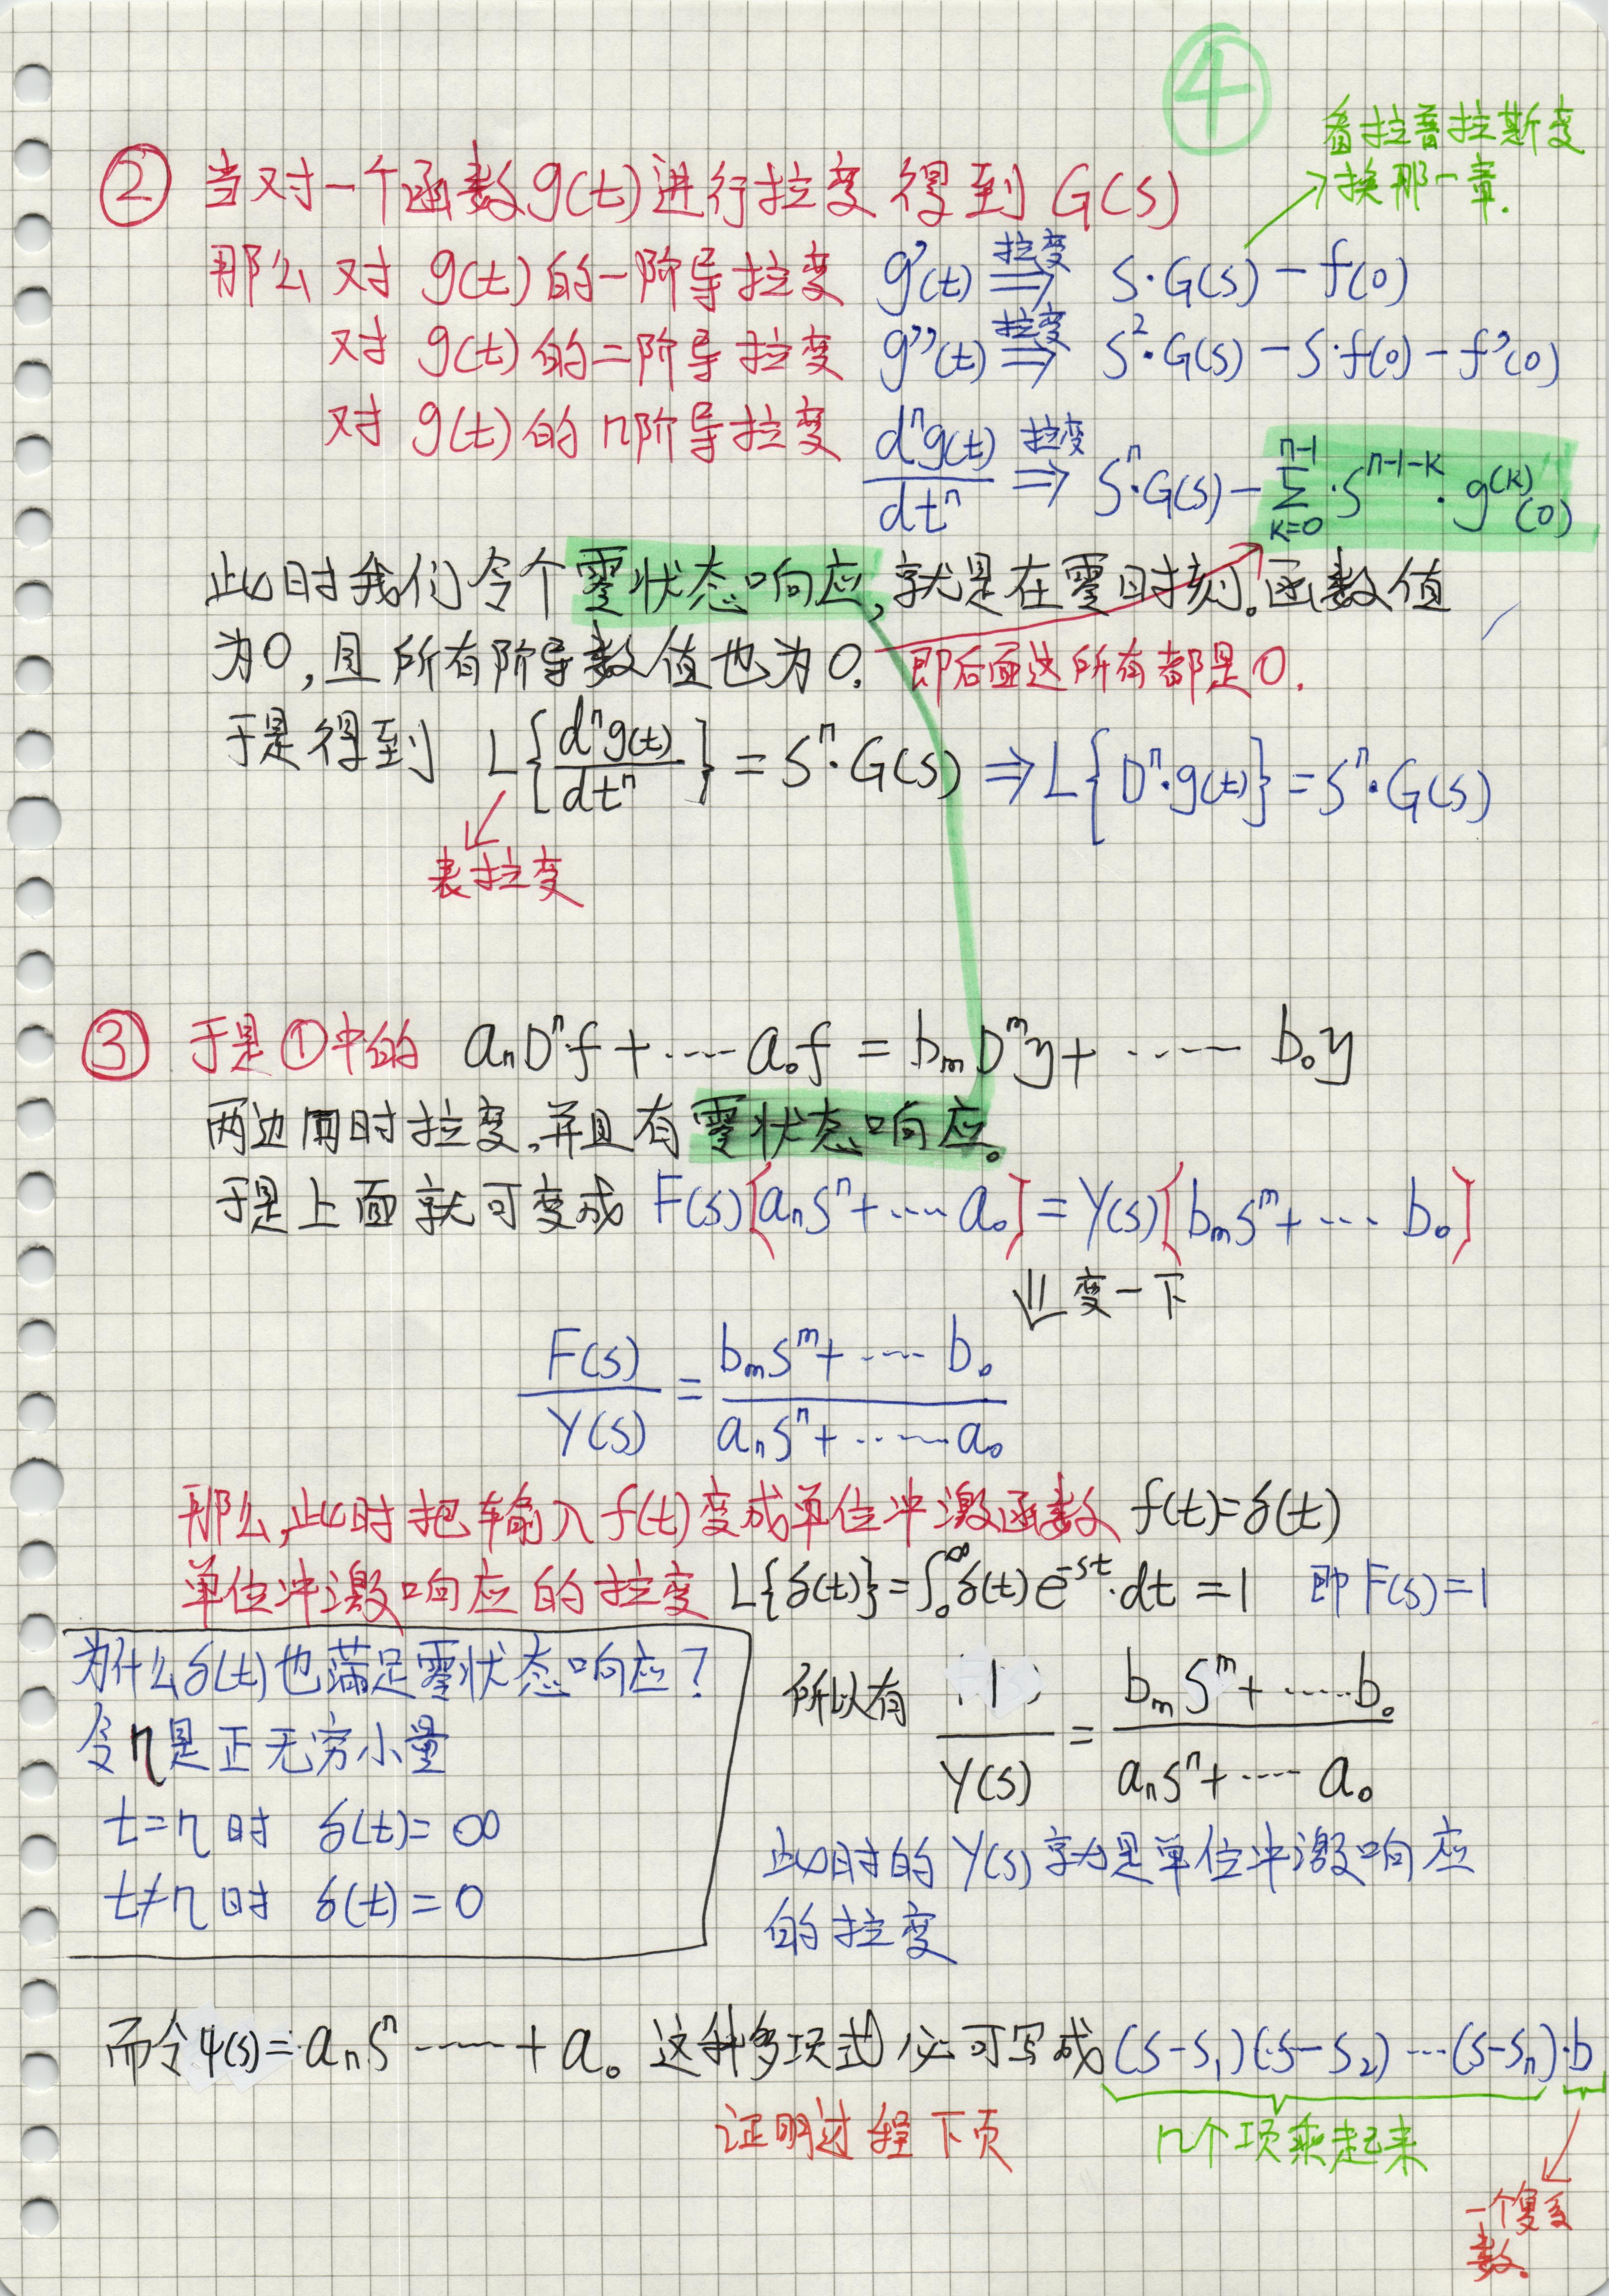 ④
看拉普拉斯变
换那一章.
② 当对一个函数g(t)进行拉变得到 G(s)
那么 对 g(t)的一阶导拉变 g'(t) 拉变⇒ S·G(s) - f(0)
对 g(t)的二阶导拉变 g''(t) 拉变⇒ S²·G(s) - S·f(0) - f'(0)
对 g(t)的 n阶导拉变 dⁿg(t)/dtⁿ 拉变⇒ Sⁿ·G(s) - Σ_{k=0}^{n-1}·S^{n-1-k}·g^{(k)}(0)
此时我们令个零状态响应,就是在零时刻。函数值
为0,且所有阶导数值也为0. 即后面这所有都是0.
于是得到 L{dⁿg(t)/dtⁿ} = Sⁿ·G(s) ⇒ L{Dⁿ·g(t)} = Sⁿ·G(s)
表拉变
③ 于是①中的 aₙDⁿf + ···· a₀f = bₘDᵐy + ····· b₀y
两边同时拉变,并且有零状态响应。
于是上面就可变成 F(s)[aₙSⁿ + ···· a₀] = Y(s)[bₘSᵐ + ··· b₀]
⇓ 变一下
F(s)/Y(s) = (bₘSᵐ + ····· b₀)/(aₙSⁿ + ······ a₀)
那么,此时把输入f(t)变成单位冲激函数 f(t)=δ(t)
单位冲激响应的拉变 L{δ(t)} = ∫₀^∞ δ(t)e^{-st}·dt = 1 即 F(s)=1
为什么δ(t)也满足零状态响应?
令η是正无穷小量
t=η时 δ(t)=∞
t≠η时 δ(t)=0
所以有 1/Y(s) = (bₘSᵐ + ······b₀)/(aₙSⁿ + ···· a₀)
此时的 Y(s) 就是单位冲激响应
的拉变
而令ψ(s)=aₙSⁿ ······ + a₀ 这种多项式必可写成(S-S₁)(S-S₂)···(S-Sₙ)·b
证明过程下页
n个项乘起来
一个复系
数.